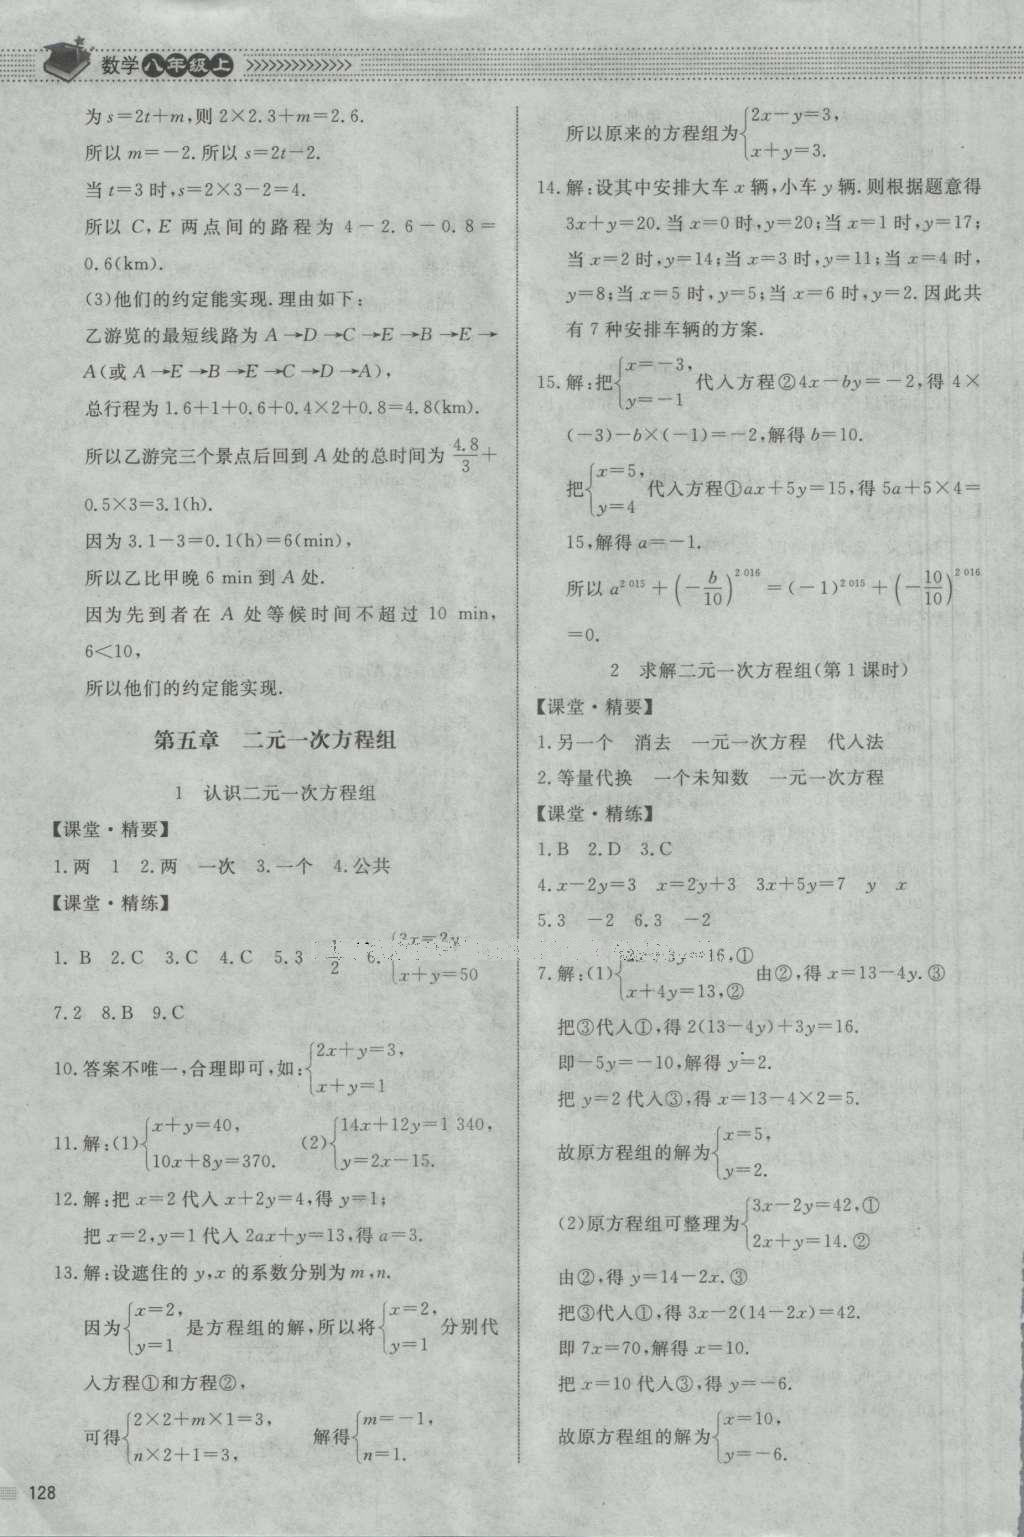 数学八年级上 >>>>>>>>>>>>>>
为 s=2t+m,则 2×2.3+m=2.6.
所以 m=-2.所以 s=2t-2.
当 t=3 时,s=2×3-2=4.
所以 C,E 两点间的路程为 4-2.6-0.8=
0.6(km).
(3)他们的约定能实现.理由如下:
乙游览的最短线路为 A→D→C→E→B→E→
A(或 A→E→B→E→C→D→A),
总行程为 1.6+1+0.6+0.4×2+0.8=4.8(km).
所以乙游完三个景点后回到 A 处的总时间为 4.8/3+
0.5×3=3.1(h).
因为 3.1-3=0.1(h)=6(min),
所以乙比甲晚 6 min 到 A 处.
因为先到者在 A 处等候时间不超过 10 min,
6<10,
所以他们的约定能实现.
第五章 二元一次方程组
1 认识二元一次方程组
【课堂·精要】
1.两 1 2.两 一次 3.一个 4.公共
【课堂·精练】
1. B 2.C 3.C 4.C 5.3 1/2 6.{3x=2y
x+y=50
7.2 8.B 9.C
10.答案不唯一,合理即可,如:{2x+y=3,
x+y=1
11.解:(1){x+y=40,
10x+8y=370.
(2){14x+12y=1 340,
y=2x-15.
12.解:把 x=2 代入 x+2y=4,得 y=1;
把 x=2,y=1 代入 2ax+y=13,得 a=3.
13.解:设遮住的 y,x 的系数分别为 m,n.
因为{x=2,
y=1 是方程组的解,所以将{x=2,
y=1 分别代
入方程①和方程②,
可得{2×2+m×1=3,
n×2+1=3,
解得{m=-1,
n=1.
128
所以原来的方程组为{2x-y=3,
x+y=3.
14.解:设其中安排大车 x 辆,小车 y 辆.则根据题意得
3x+y=20.当 x=0 时,y=20;当 x=1 时,y=17;
当 x=2 时,y=14;当 x=3 时,y=11;当 x=4 时,
y=8;当 x=5 时,y=5;当 x=6 时,y=2.因此共
有 7 种安排车辆的方案.
15.解:把{x=-3,
y=-1 代入方程②4x-by=-2,得 4×
(-3)-b×(-1)=-2,解得 b=10.
把{x=5,
y=4 代入方程①ax+5y=15,得 5a+5×4=
15,解得 a=-1.
所以 a^2 015+(-b/10)^2 016=(-1)^2 015+(-10/10)^2 016
=0.
2 求解二元一次方程组(第 1 课时)
【课堂·精要】
1.另一个 消去 一元一次方程 代入法
2.等量代换 一个未知数 一元一次方程
【课堂·精练】
1.B 2.D 3.C
4.x-2y=3 x=2y+3 3x+5y=7 y x
5.3 -2 6.3 -2
7.解:(1){2x+3y=16,①
x+4y=13,② 由②,得 x=13-4y.③
把③代入①,得 2(13-4y)+3y=16.
即-5y=-10,解得 y=2.
把 y=2 代入③,得 x=13-4×2=5.
故原方程组的解为{x=5,
y=2.
(2)原方程组可整理为{3x-2y=42,①
2x+y=14.②
由②,得 y=14-2x.③
把③代入①,得 3x-2(14-2x)=42.
即 7x=70,解得 x=10.
把 x=10 代入③,得 y=-6.
故原方程组的解为{x=10,
y=-6.